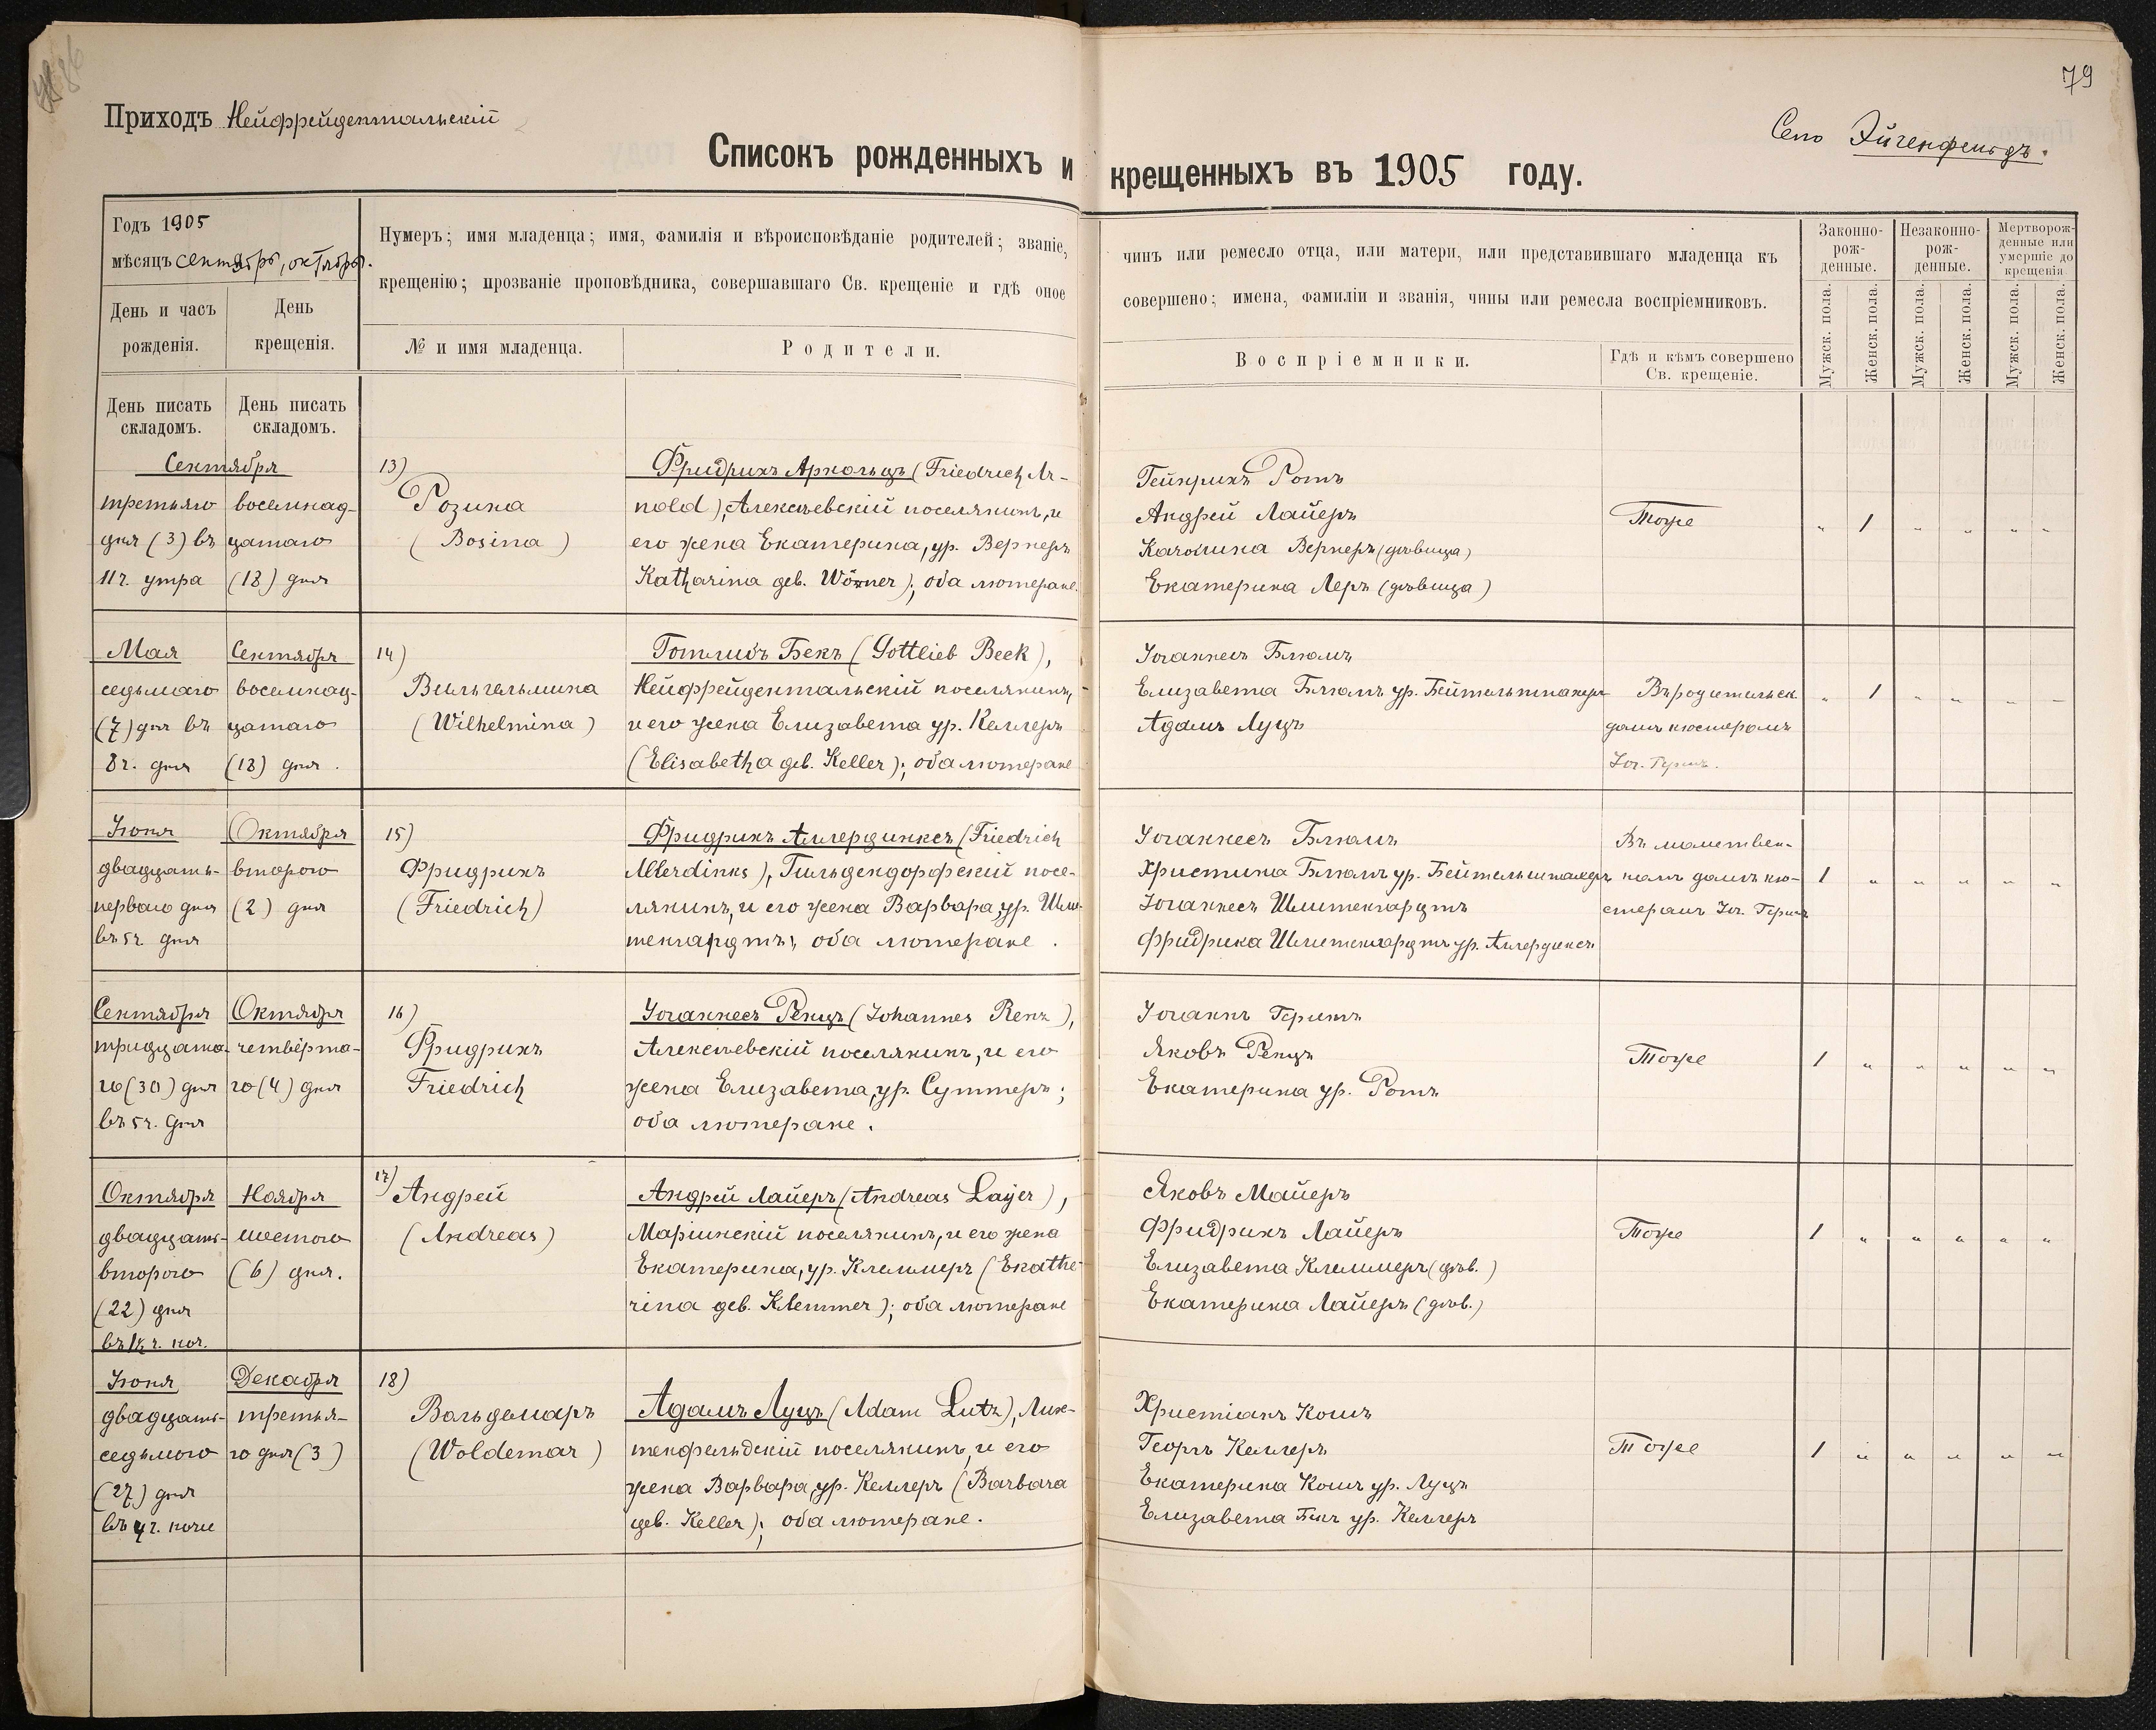 79
Приходъ Нейфрейдентальскій
Село Эйгенфельдъ.
Списокъ рожденныхъ и крещенныхъ въ 1905 году.
Годъ 1905
мѣсяцъ сентябрь, октябрь.
День и часъ рожденія.
День крещенія.
Нумеръ; имя младенца; имя, фамилія и вѣроисповѣданіе родителей; званіе,
крещенію; прозваніе проповѣдника, совершавшаго Св. крещеніе и гдѣ оное
№ и имя младенца.
Родители.
чинъ или ремесло отца, или матери, или представившаго младенца къ
совершено; имена, фамиліи и званія, чины или ремесла воспріемниковъ.
Воспріемники.
Гдѣ и кѣмъ совершено
Св. крещеніе.
Законно-
рож-
денные.
Незаконно-
рож-
денные.
Мертворож-
денные или
умершіе до
крещенія
Мужск. пола.
Женск. пола.
Мужск. пола.
Женск. пола.
Мужск. пола.
Женск. пола.
День писать
складомъ.
День писать
складомъ.
Сентября
третьяго
дня (3) въ
11 ч. утра
восемнад-
цатаго
(18) дня
13)
Розина
(Rosina)
Фридрихъ Арнольдъ (Friedrich Ar-
nold), Алексѣевскій поселянинъ, и
его жена Екатерина, ур. Вернеръ
Katharina geb. Wörner); оба лютеране.
Гейнрихъ Ротъ
Андрей Лайеръ
Каролина Вернеръ (дѣвица)
Екатерина Леръ (дѣвица)
Тоже
" 1 " " " "
Мая
седьмаго
(7) дня въ
8 ч. дня
Сентября
восемнад-
цатаго
(18) дня.
14)
Вильгельмина
(Wilhelmina)
Готлибъ Бекъ (Gottlieb Beck),
Нейфрейдентальскій поселянинъ,
и его жена Елизавета ур. Келлеръ
(Elisabetha geb. Keller); оба лютеране
Іоганнесъ Блюмъ
Елизавета Блюмъ ур. Бейтельшпахеръ
Адамъ Луцъ
Въ родительск.
домѣ кюстеромъ
" 1 " " " "
Іюня
двадцать-
перваго дня
въ 5 ч. дня
Октября
второго
(2) дня
15)
Фридрихъ
(Friedrich)
Фридрихъ Аллердинксъ (Friedrich
Allerdinks), Гильдендорфскій посе-
лянинъ, и его жена Варвара, ур. Шли-
тенгардтъ, оба лютеране.
Іоганнесъ Блюмъ
Христина Блюмъ ур. Бейтельшпахеръ
Іоганнесъ Шлитенгардтъ
Фридрика Шлитенгардтъ ур. Аллердинксъ
Въ молитвен-
номъ домѣ кю-
стеромъ Іог.
1 " " " " "
Сентября
тридцата-
го (30) дня
въ 5 ч. дня
Октября
четвёрта-
го (4) дня
16)
Фридрихъ
Friedrich
Іоганнесъ Ренцъ (Johannes Renz),
Алексѣевскій поселянинъ, и его
жена Елизавета, ур. Суттеръ;
оба лютеране.
Іоганнъ
Яковъ Ренцъ
Екатерина ур. Ротъ
Тоже
1 " " " " "
Октября
двадцать-
второго
(22) дня
Ноября
шестого
(6) дня.
17)
Андрей
(Andreas)
Андрей Лайеръ (Andreas Layer),
Маріинскій поселянинъ, и его жена
Екатерина, ур. Клеммеръ (Ekathe-
rina geb. Klemmer); оба лютеране
Яковъ Майеръ
Фридрихъ Лайеръ
Елизавета Клеммеръ (дѣв.)
Екатерина Лайеръ (дѣв.)
Тоже
1 " " " " "
Іюня
двадцать-
седьмого
(27) дня
въ 4 ч. ночи
Декабря
третья-
го дня (3)
18)
Вольдемаръ
(Woldemar)
Адамъ Луцъ (Adam Lutz), Лих-
тенфельдскій поселянинъ, и его
жена Варвара, ур. Келлеръ (Barbara
geb. Keller); оба лютеране.
Христіанъ Кошъ
Георгъ Келлеръ
Екатерина Кошъ ур. Луцъ
Елизавета Бекъ ур. Келлеръ
Тоже
1 " " " " "